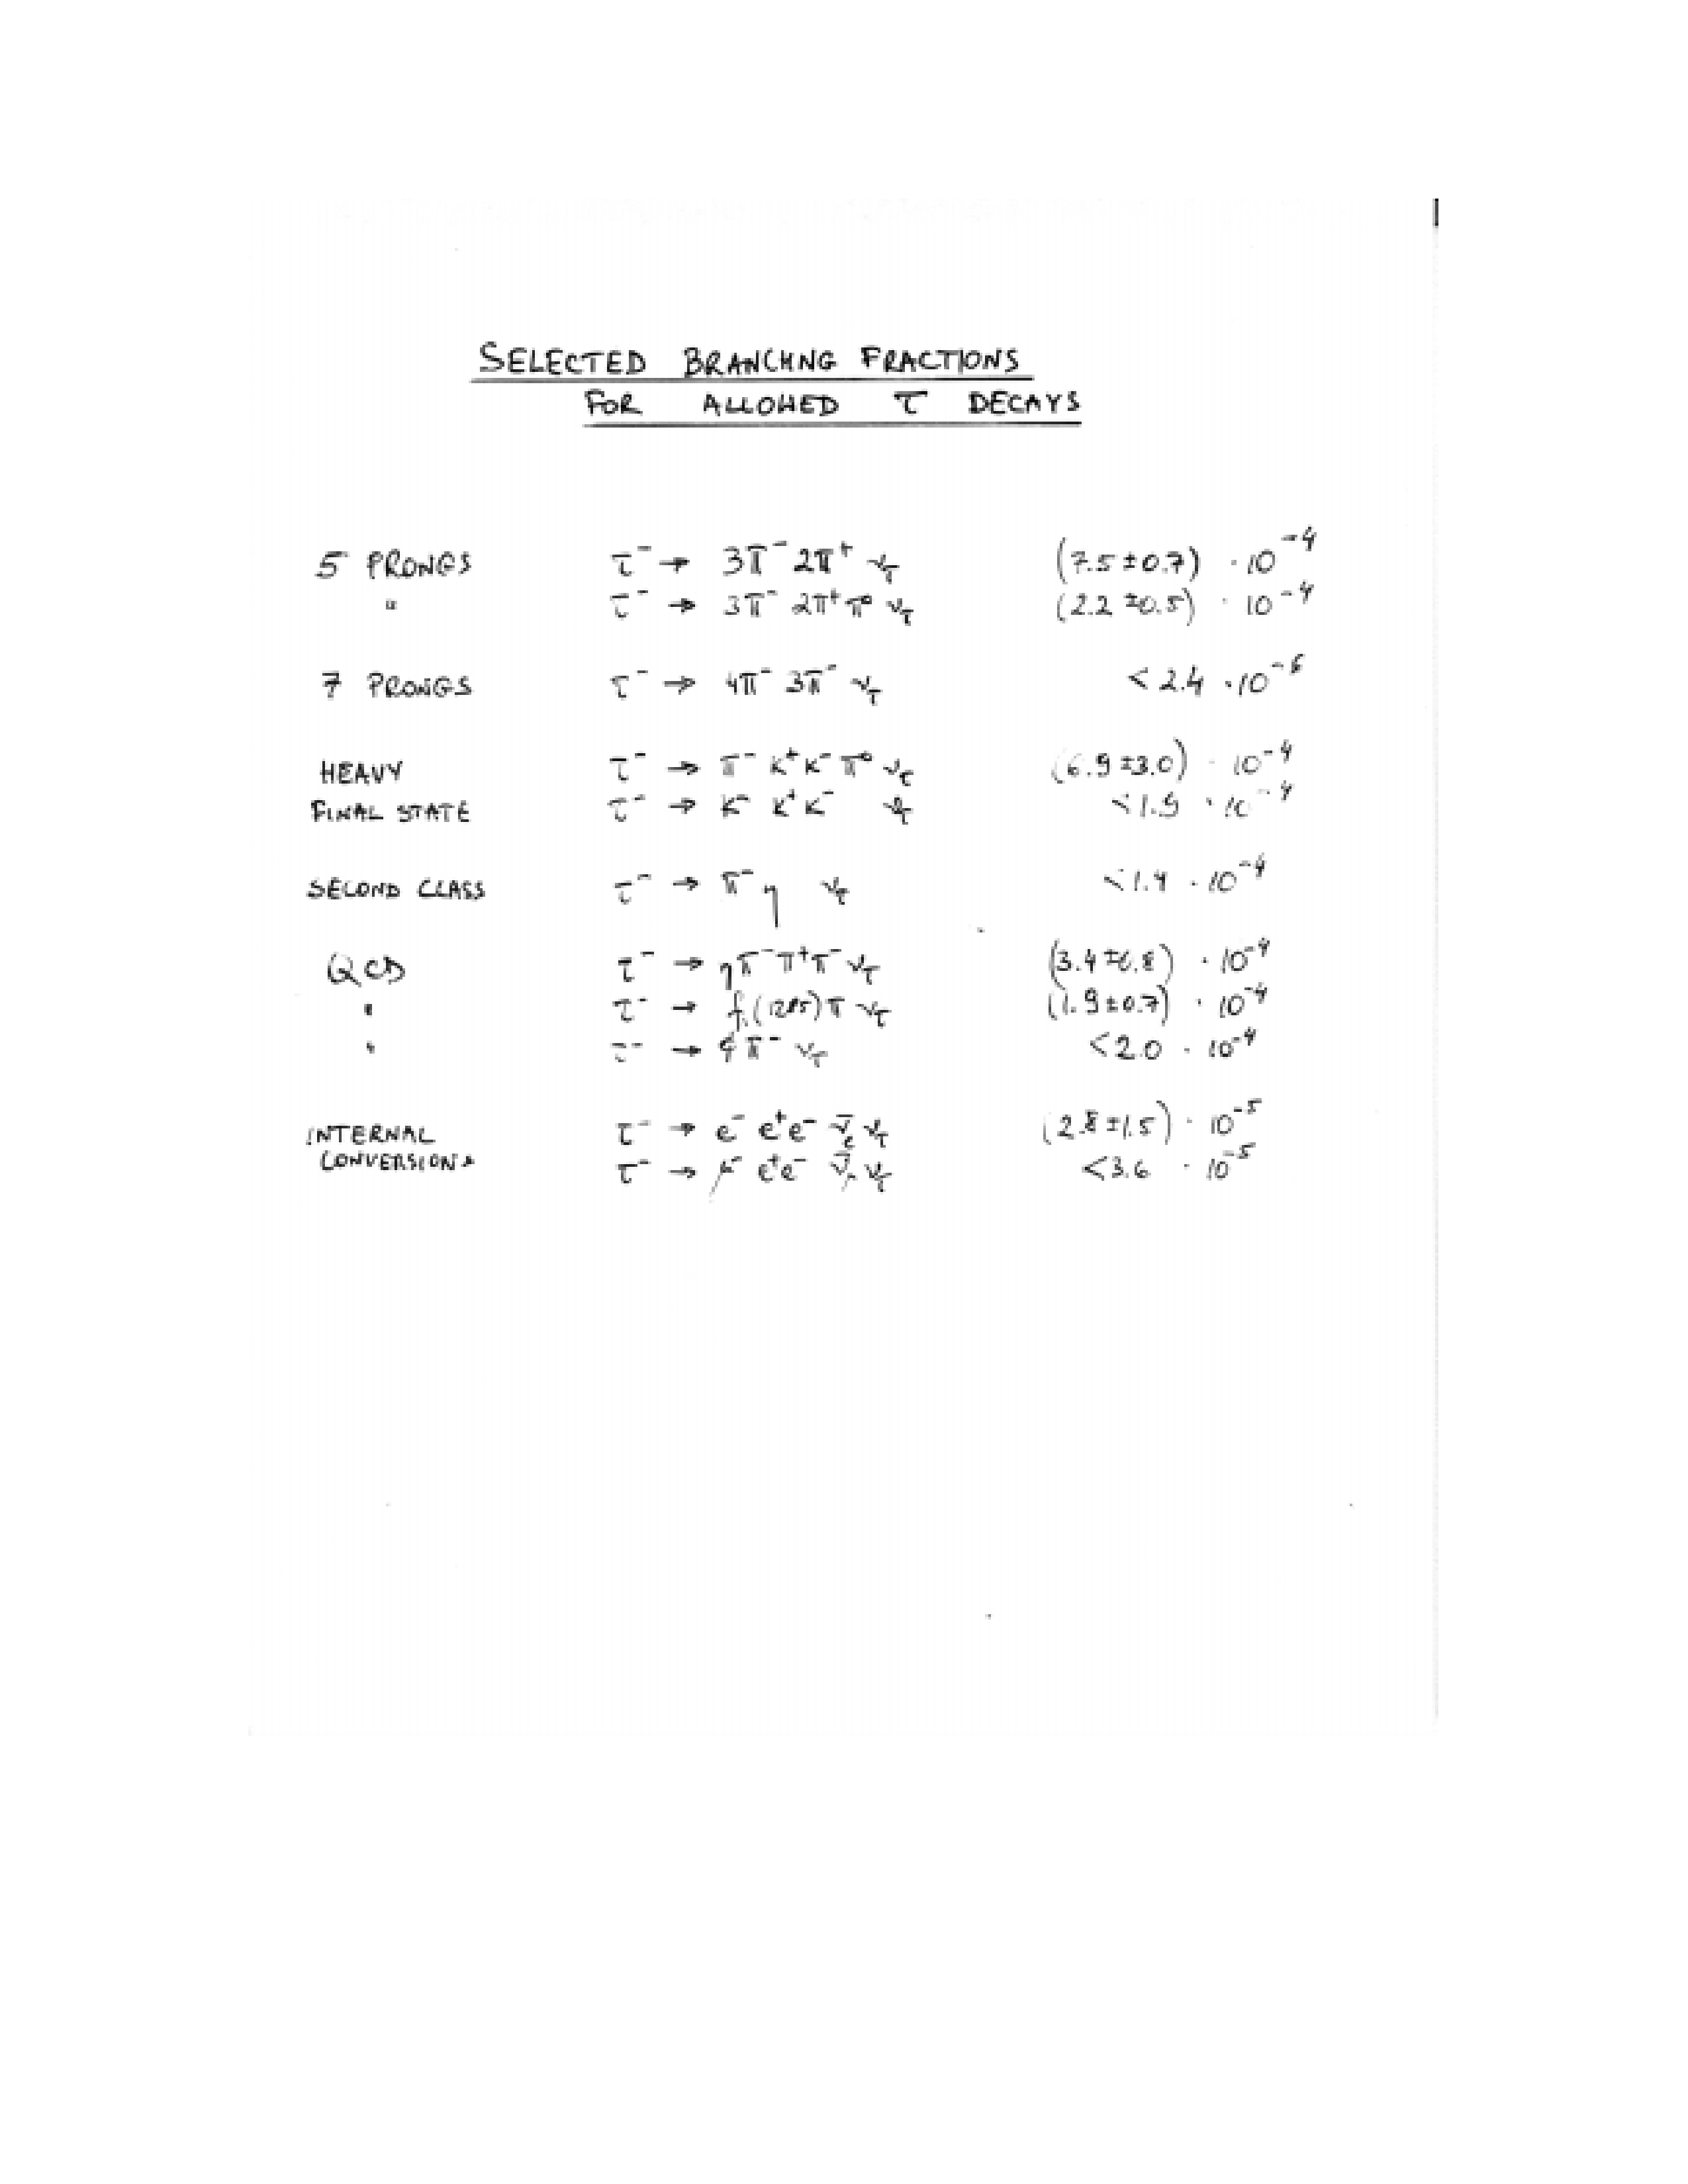 SELECTED BRANCHNG FRACTIONS
FOR ALLOWED τ DECAYS
5 PRONGS τ⁻ → 3π⁻ 2π⁺ ντ (7.5 ± 0.7) · 10⁻⁴
" τ⁻ → 3π⁻ 2π⁺ π⁰ ντ (2.2 ± 0.5) · 10⁻⁴
7 PRONGS τ⁻ → 4π⁻ 3π⁻ ντ < 2.4 · 10⁻⁶
HEAVY τ⁻ → π⁻ K⁺ K⁻ π⁰ ντ (6.9 ± 3.0) · 10⁻⁴
FINAL STATE τ⁻ → K⁻ K⁺ K⁻ ντ < 1.9 · 10⁻⁴
SECOND CLASS τ⁻ → π⁻ η ντ < 1.4 · 10⁻⁴
QCD τ⁻ → η π⁻ π⁺ π⁻ ντ (3.4 ± 0.8) · 10⁻⁴
" τ⁻ → f₁(1285) π ντ (1.9 ± 0.7) · 10⁻⁴
" τ⁻ → π⁻ ντ < 2.0 · 10⁻⁴
INTERNAL τ⁻ → e⁻ e⁺e⁻ ν̄e ντ (2.8 ± 1.5) · 10⁻⁵
CONVERSIONS τ⁻ → μ⁻ e⁺e⁻ ν̄μ ντ < 3.6 · 10⁻⁵